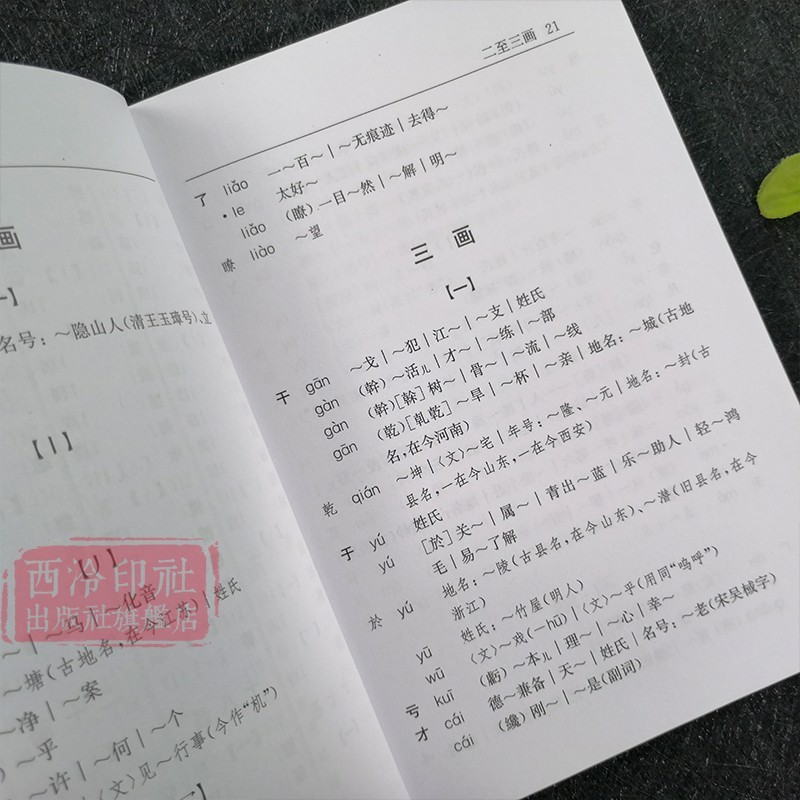 画
一】
名号：～隐山人(清王玉璋号)、立
【丨】
【丿】
～｜～马｜～化音
～塘(古地名，在今江苏)｜姓氏
～净｜～案
～乎
～许｜～何｜～个
〈文〉见～行事(今作“机”)
西泠印社
出版社旗舰店
二至三画 21
一～百～｜～无痕迹｜去得～
了 liǎo 太好～
·le (瞭)一目～然｜～解｜明～
liǎo ～望
瞭 liào
三画
【一】
干 gān ～戈｜～犯｜江～｜～支｜姓氏
gàn (幹)～活儿｜才～｜～练｜～部
gàn (幹)[榦]树～｜骨～｜～流｜～线
gān (乾)[乹乾]～旱｜～杯｜～亲｜地名：～城(古地
名，在今河南)
乾 qián ～坤｜〈文〉～宅｜年号：～隆、～元｜地名：～封(古
县名，一在今山东，一在今西安)
于 yú 姓氏
yú [於]关～｜属～｜青出～蓝｜乐～助人｜轻～鸿
毛｜易～了解
於 yú 地名：～陵(古县名，在今山东)、～潜(旧县名，在今
浙江)
yū 姓氏：～竹屋(明人)
wū 〈文〉～戏(—hū)｜〈文〉～乎(用同“呜呼”)
亏 kuī (虧)～本儿｜理～｜～心｜幸～
才 cái 德～兼备｜天～｜姓氏｜名号：～老(宋吴棫字)
cái (纔)刚～｜～是(副词)